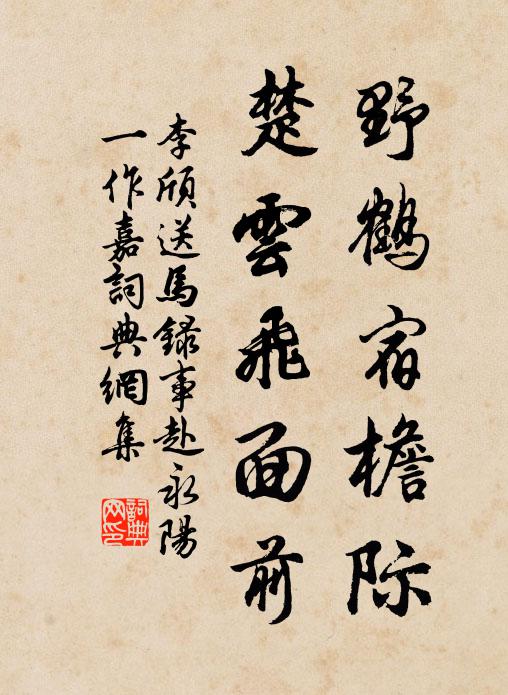 野鶴宿檐际
楚雲飛面前
李頎送馬録事赴永陽
一作嘉詞典網集
詞典网印